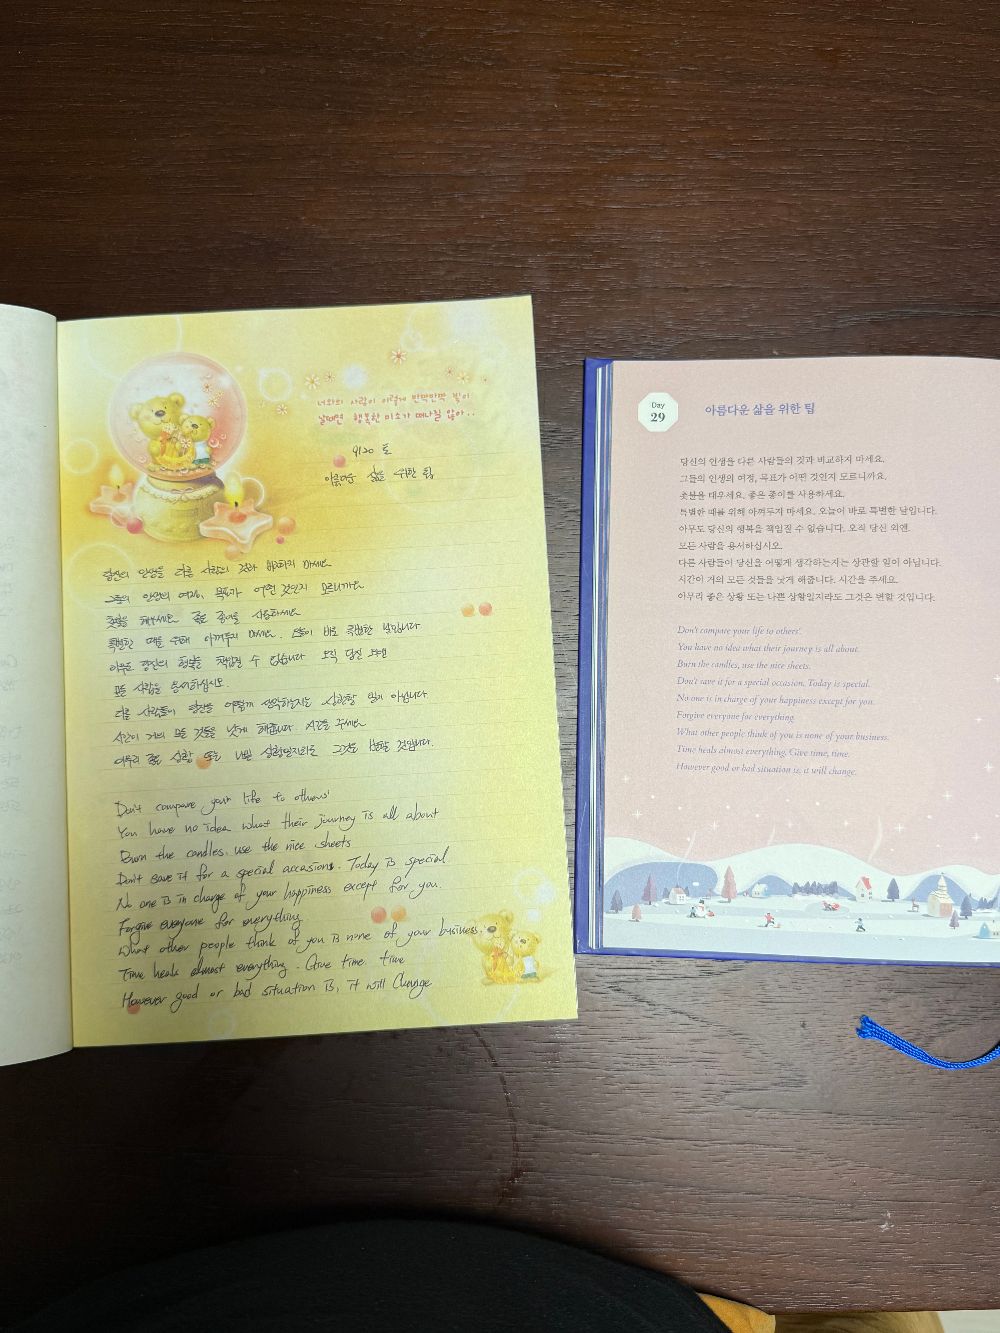 너와의 사랑이 이렇게 반짝반짝 빛이
날때면 행복한 미소가 떠나질 않아..
9/20 토
아름다운 삶을 위한 팁
당신의 인생을 다른 사람의 것과 비교하지 마세요
그들의 인생의 여정, 목표가 어떤 것인지 모르니까요
촛불을 태우세요 좋은 종이를 사용하세요
특별한 때를 위해 아껴두지 마세요. 오늘이 바로 특별한 날입니다
아무도 당신의 행복을 책임질 수 없습니다 오직 당신 외엔
모든 사람을 용서하십시오.
다른 사람들이 당신을 어떻게 생각하는지는 상관할 일이 아닙니다
시간이 거의 모든 것들을 낫게 해줍니다 시간을 주세요
아무리 좋은 상황 또는 나쁜 상황일지라도 그것은 변할 것입니다.
Don't compare your life to others'
You have no idea what their journey is all about
Burn the candles, use the nice sheets
Don't save it for a special accasions. Today is special
No one is in charge of your happiness except for you.
Forgive everyone for everything
What other people think of you is none of your business.
Time heals almost everything. Give time. time
However good or bad situation is, it will change
Day
29
아름다운 삶을 위한 팁
당신의 인생을 다른 사람들의 것과 비교하지 마세요.
그들의 인생의 여정, 목표가 어떤 것인지 모르니까요.
촛불을 태우세요. 좋은 종이를 사용하세요.
특별한 때를 위해 아껴두지 마세요. 오늘이 바로 특별한 날입니다.
아무도 당신의 행복을 책임질 수 없습니다. 오직 당신 외엔.
모든 사람을 용서하십시오.
다른 사람들이 당신을 어떻게 생각하는지는 상관할 일이 아닙니다.
시간이 거의 모든 것들을 낫게 해줍니다. 시간을 주세요.
아무리 좋은 상황 또는 나쁜 상황일지라도 그것은 변할 것입니다.
Don't compare your life to others'.
You have no idea what their journey is all about.
Burn the candles, use the nice sheets.
Don't save it for a special occasion. Today is special.
No one is in charge of your happiness except for you.
Forgive everyone for everything.
What other people think of you is none of your business.
Time heals almost everything. Give time, time.
However good or bad situation is, it will change.